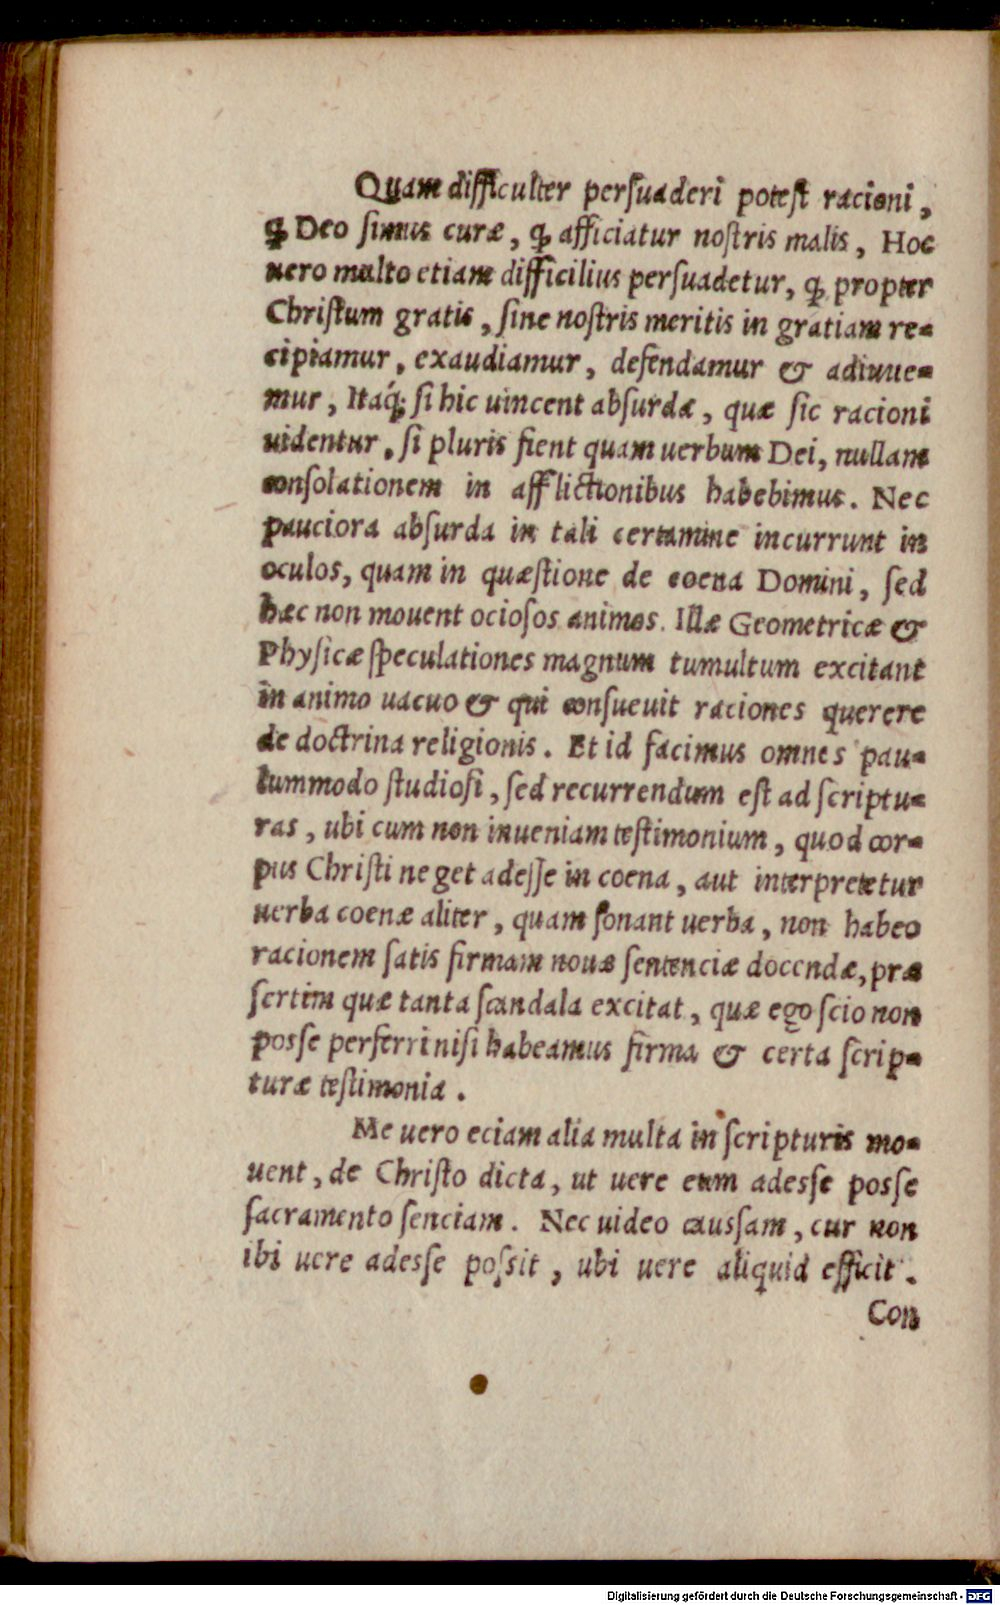 Quam difficulter perſuaderi poteſt racioni,
ꝙ Deo ſimus curæ, ꝙ afficiatur noſtris malis, Hoc
uero multo etiam difficilius perſuadetur, ꝙ propter
Chriſtum gratis, ſine noſtris meritis in gratiam re=
cipiamur, exaudiamur, defendamur & adiuue=
mur, Itaq́; ſi hic uincent abſurda, quæ ſic racioni
uidentur, ſi pluris fient quam uerbum Dei, nullam
conſolationem in afflictionibus habebimus. Nec
pauciora abſurda in tali certamine incurrunt in
oculos, quam in quæſtione de coena Domini, ſed
hæc non mouent ocioſos animos. Illæ Geometricæ &
Phyſicæ ſpeculationes magnum tumultum excitant
in animo uacuo & qui conſueuit raciones querere
de doctrina religionis. Et id facimus omnes pau=
lummodo ſtudioſi, ſed recurrendum eſt ad ſcriptu=
ras, ubi cum non inueniam teſtimonium, quod cor=
pus Chriſti neget adeſſe in coena, aut interpretetur
uerba coenæ aliter, quam ſonant uerba, non habeo
racionem ſatis firmam nouæ ſentenciæ docendæ, præ
ſertim quæ tanta ſcandala excitat, quæ ego ſcio non
posſe perferri niſi habeamus firma & certa ſcrip=
turæ teſtimonia.
Me uero eciam alia multa in ſcripturis mo=
uent, de Chriſto dicta, ut uere eum adesſe posſe
ſacramento ſenciam. Nec uideo cauſsam, cur non
ibi uere adesſe poſsit, ubi uere aliquid efficit.
Con
Digitalisierung gefördert durch die Deutsche Forschungsgemeinschaft - DFG